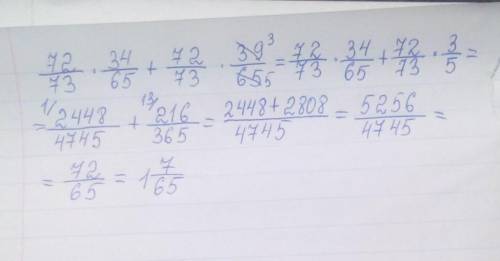 72/73 · 34/65 + 72/73 · 39³/65₅ = 72/73 · 34/65 + 72/73 · 3/5 =
= ¹⁾2448/4745 + ¹³⁾216/365 = 2448+2808/4745 = 5256/4745 =
= 72/65 = 1 7/65